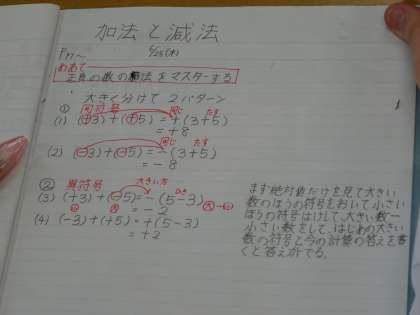 加法と減法
P17〜 6/25(木)
めあて
正負の数の加法をマスターする
大きく分けて2パターン
① 同符号 同じ たす
(1) (+3)+(+5)=+(3+5)
=+8
同じ たす
(2) (-3)+(-5)=-(3+5)
=-8
② 異符号 大きい方 ひき
(3) (+3)+(-5)=-(5-3)
=-2
(4) (-3)+(+5)=+(5-3)
=+2
まず絶対値だけを見て大きい
数のほうの符号をおいて小さい
ほうの符号はけして、大きい数ー
小さい数をして、はじめの大きい
数の符号と今の計算の答えを書
くと答えがでる。